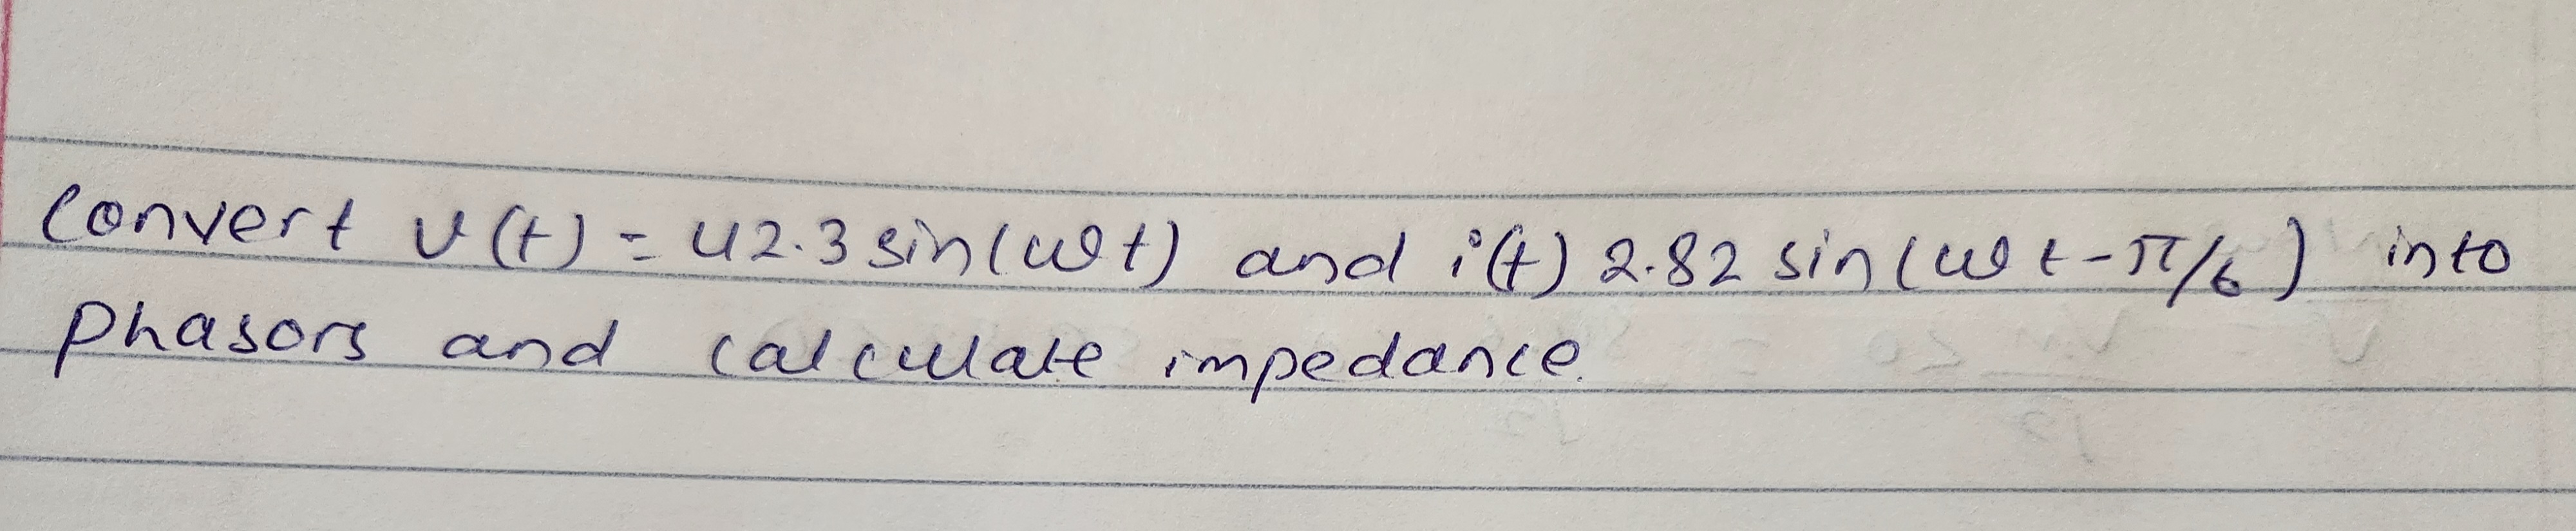 Convert v(t) = 42.3 sin(ωt) and i(t) 2.82 sin(ωt-π/6) into
Phasors and calculate impedance.